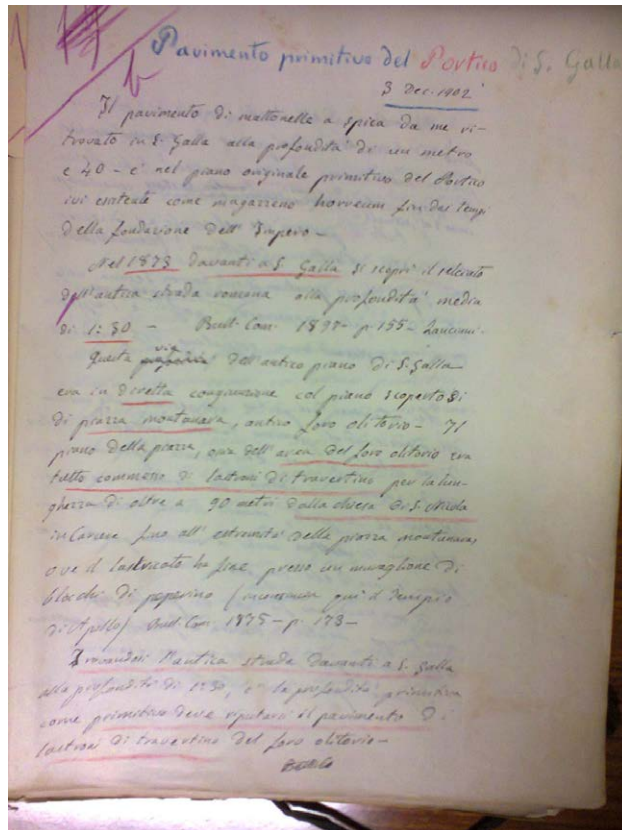 Pavimento primitivo del Portico di S. Galla
b
3 Dec. 1902
Il pavimento di mattonelle a spica da me ri-
trovato in S. Galla alla profondità di un metro
e 40 - e' nel piano originale primitivo del Portico
ivi esistente come magazzeno horreum fin dai tempi
della fondazione dell' Impero -
Nel 1873 davanti a S. Galla si scoprì il selciato
dell'antica strada romana alla profondità media
di 1:30 - Bull. Com. 1897 - p. 155 - Lanciani -
Questa via dell' antico piano di S. Galla
era in diretta congiunzione col piano scoperto di
di piazza montanara, antico foro olitorio - Il
piano della piazza, ossia dell' area del foro olitorio era
tutto commesso di lastroni di travertino per la lun-
ghezza di oltre a 90 metri dalla chiesa di S. Nicola
in Carcere fino all' estremità della piazza montanara,
ove il lastricato ha fine presso un muraglione di
blocchi di peperino ( qui il Tempio
di Apollo) Bull. Com. 1875 - p. 173 -
Trovandosi l'antica strada davanti a S. Galla
alla profondità di 1:30, e' la profondità primitiva
come primitivo deve reputarsi il pavimento di
lastroni di travertino del foro olitorio -